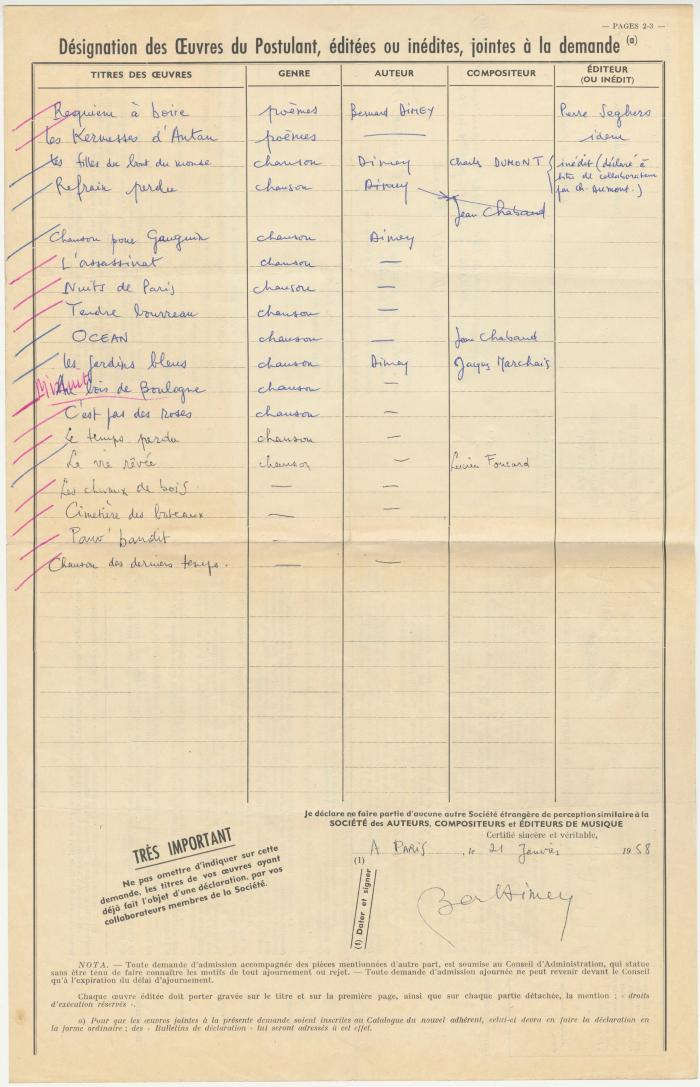 — PAGES 2-3 —
Désignation des Œuvres du Postulant, éditées ou inédites, jointes à la demande (a)
TITRES DES ŒUVRES GENRE AUTEUR COMPOSITEUR ÉDITEUR (OU INÉDIT)
Requiem à boire poèmes Bernard DIMEY Pierre Seghers
Les Kermesses d'Antan poèmes — idem
Les filles du bout du monde chanson Dimey Charles DUMONT { inédit (déclaré à
titre de collaboration
par Ch. Dumont.)
Refrain perdu chanson Dimey
Jean Chabaud
Chanson pour Gauguin chanson Dimey
L'assassinat chanson —
Nuits de Paris chanson —
Tendre bourreau chanson —
OCEAN chanson — Jean Chabaud
Les Jardins bleus chanson Dimey Jacques Marchais
Minuit
Au bois de Boulogne chanson —
C'est pas des roses chanson —
Le temps perdu chanson —
La vie rêvée chanson — Lucien Foucard
Les chevaux de bois — —
Cimetière des bateaux — —
Pauv' bandit - —
Chanson des derniers temps. — —
Je déclare ne faire partie d'aucune autre Société étrangère de perception similaire à la
SOCIÉTÉ des AUTEURS, COMPOSITEURS et ÉDITEURS DE MUSIQUE
Certifié sincère et véritable,
A PARIS, le 21 Janvier 1958
(1)
(1) Dater et signer
Ber Dimey
TRÈS IMPORTANT
Ne pas omettre d'indiquer sur cette
demande, les titres de vos œuvres ayant
déjà fait l'objet d'une déclaration, par vos
collaborateurs membres de la Société.
NOTA. — Toute demande d'admission accompagnée des pièces mentionnées d'autre part, est soumise au Conseil d'Administration, qui statue
sans être tenu de faire connaître les motifs de tout ajournement ou rejet. — Toute demande d'admission ajournée ne peut revenir devant le Conseil
qu'à l'expiration du délai d'ajournement.
Chaque œuvre éditée doit porter gravée sur le titre et sur la première page, ainsi que sur chaque partie détachée, la mention : « droits
d'exécution réservés ».
a) Pour que les œuvres jointes à la présente demande soient inscrites au Catalogue du nouvel adhérent, celui-ci devra en faire la déclaration en
la forme ordinaire ; des « Bulletins de déclaration » lui seront adressés à cet effet.